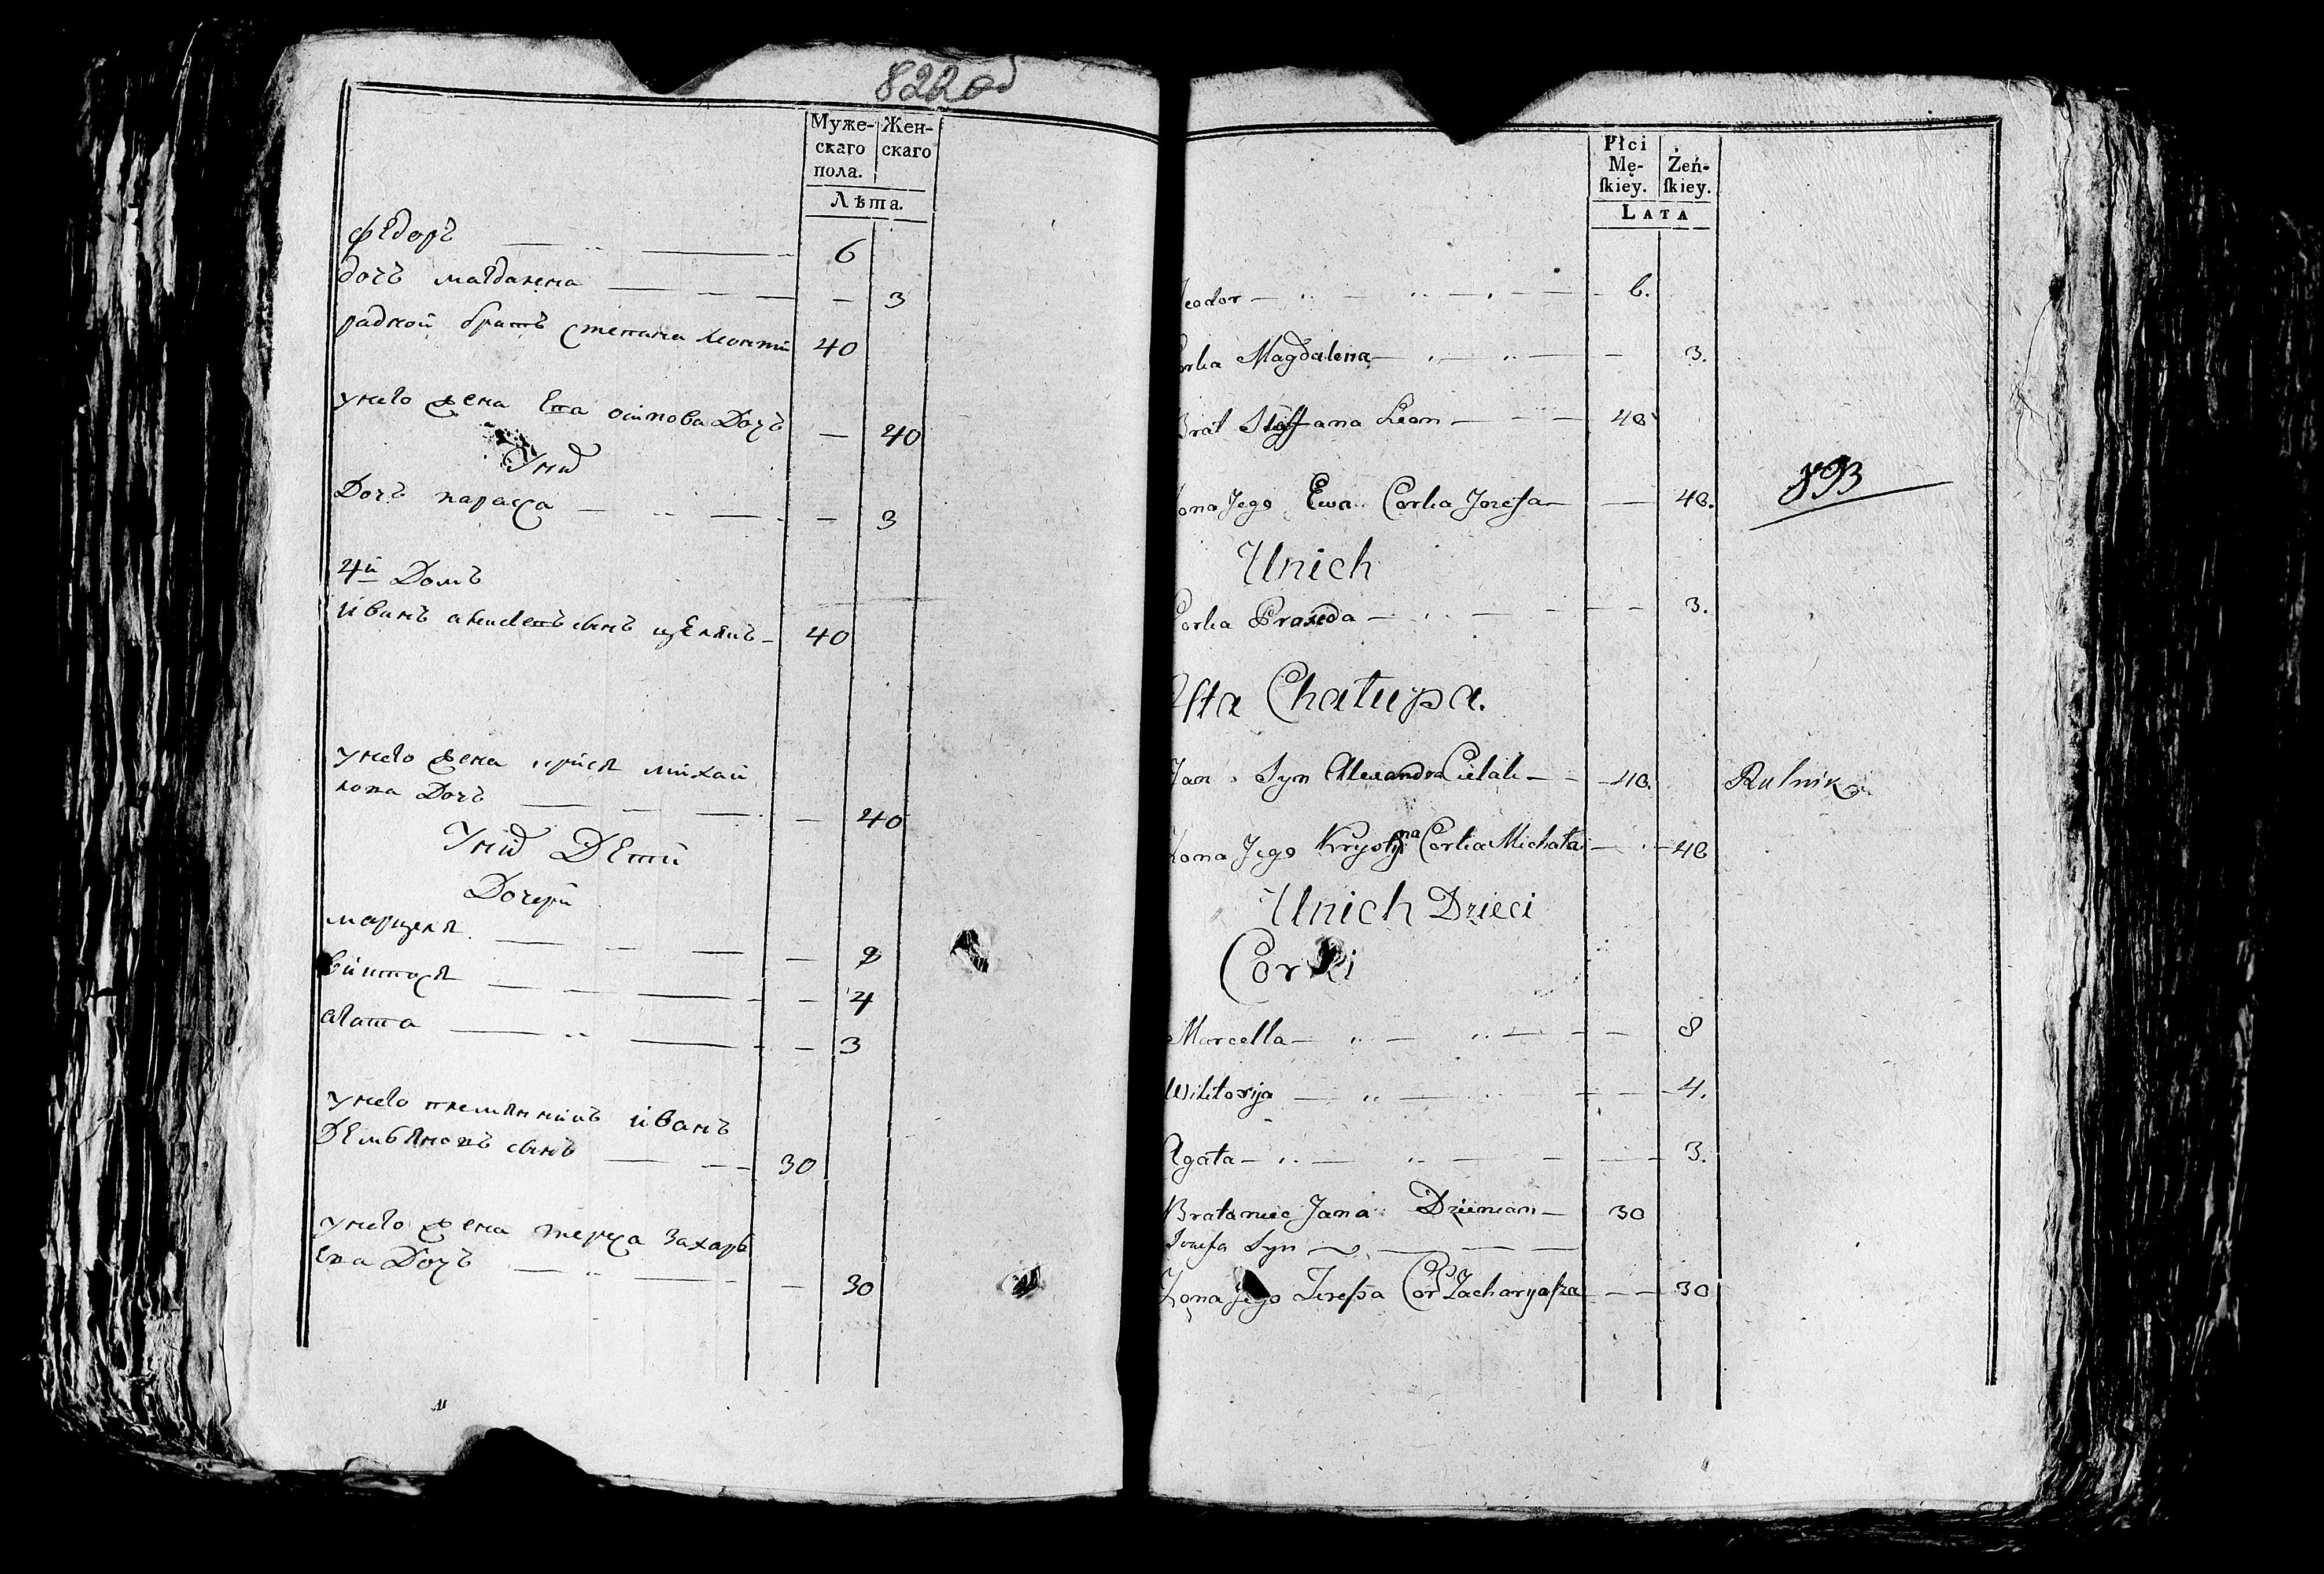 822об
Муже- Жен-
скаго скаго
пола.
Лѣта.
Федоръ 6
дочь магдалена 3
радной братъ степана леонтй 40
унего жена Ева осипова Дочь 40
Унихъ
Дочь парасса 3
4й Домъ
иванъ сынъ 40
унего жена михай
лова Дочь 40
Унихъ Дети
Дочери
марцеля 8
4
агата 3
унего племянникъ иванъ
Демьяновъ сынъ 30
унего жена тереса захарь
ева Дочь 30
Płci
Mę- Żeń-
ſkiey. ſkiey.
LATA
Teodor 6.
Corka Magdalena 3.
Brat Steffana Leon 40
893
Żona Jego Ewa Corka Jozefa 40.
Unich
Corka Praxeda 3.
4ta Chałupa.
Jan Syn Alexandra Cielak 40. Rolnik
Zona Jego Krystyna Corka Michała 40
Unich Dzieci
Corki
Marcella 8
Wiktorija 4.
Agata 3.
Brataniec Jana Dziemian 30
Syn
Żona Jego Teressa Cor Zacharyasza 30